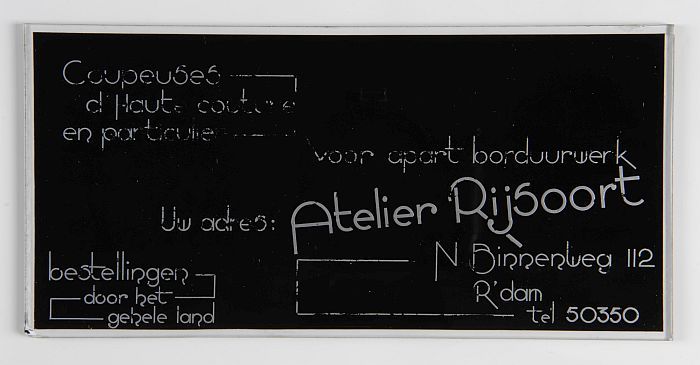 Coupeuses
d'Haute couture
en particulier
voor apart borduurwerk
Uw adres: Atelier Rijsoort
N Binnenweg 112
R'dam
tel 50350
bestellingen
door het
gehele land